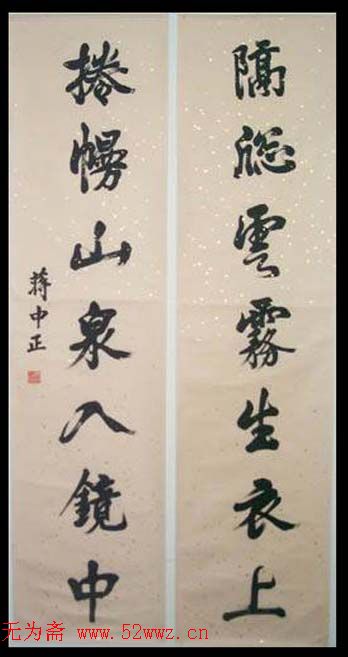 隔牕雲霧生衣上
捲幔山泉入鏡中
蔣中正
无为斋 www.52wwz.cn